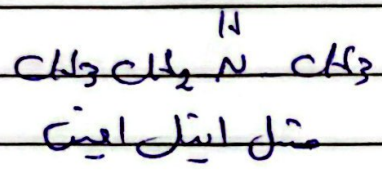 H
CH3 CH2 N CH3
مثل ايثل امين